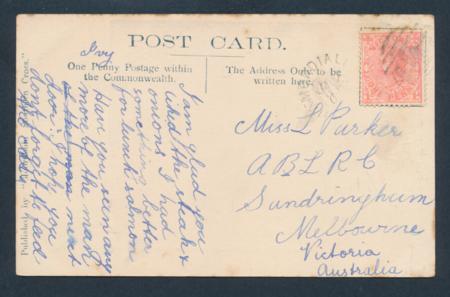 POST CARD.
One Penny Postage within
the Commonwealth.
The Address Only to be
written here.
Ivy
I am glad you
liked the steak &
onions I had
something better
for lunch salmon
Have you seen any
more of the mast
next
door. I hope you
dont forget to feed
the
Miss L Parker
A B L R C
Sundringhum
Melbourne
Victoria
Australia
Published by
Cross."